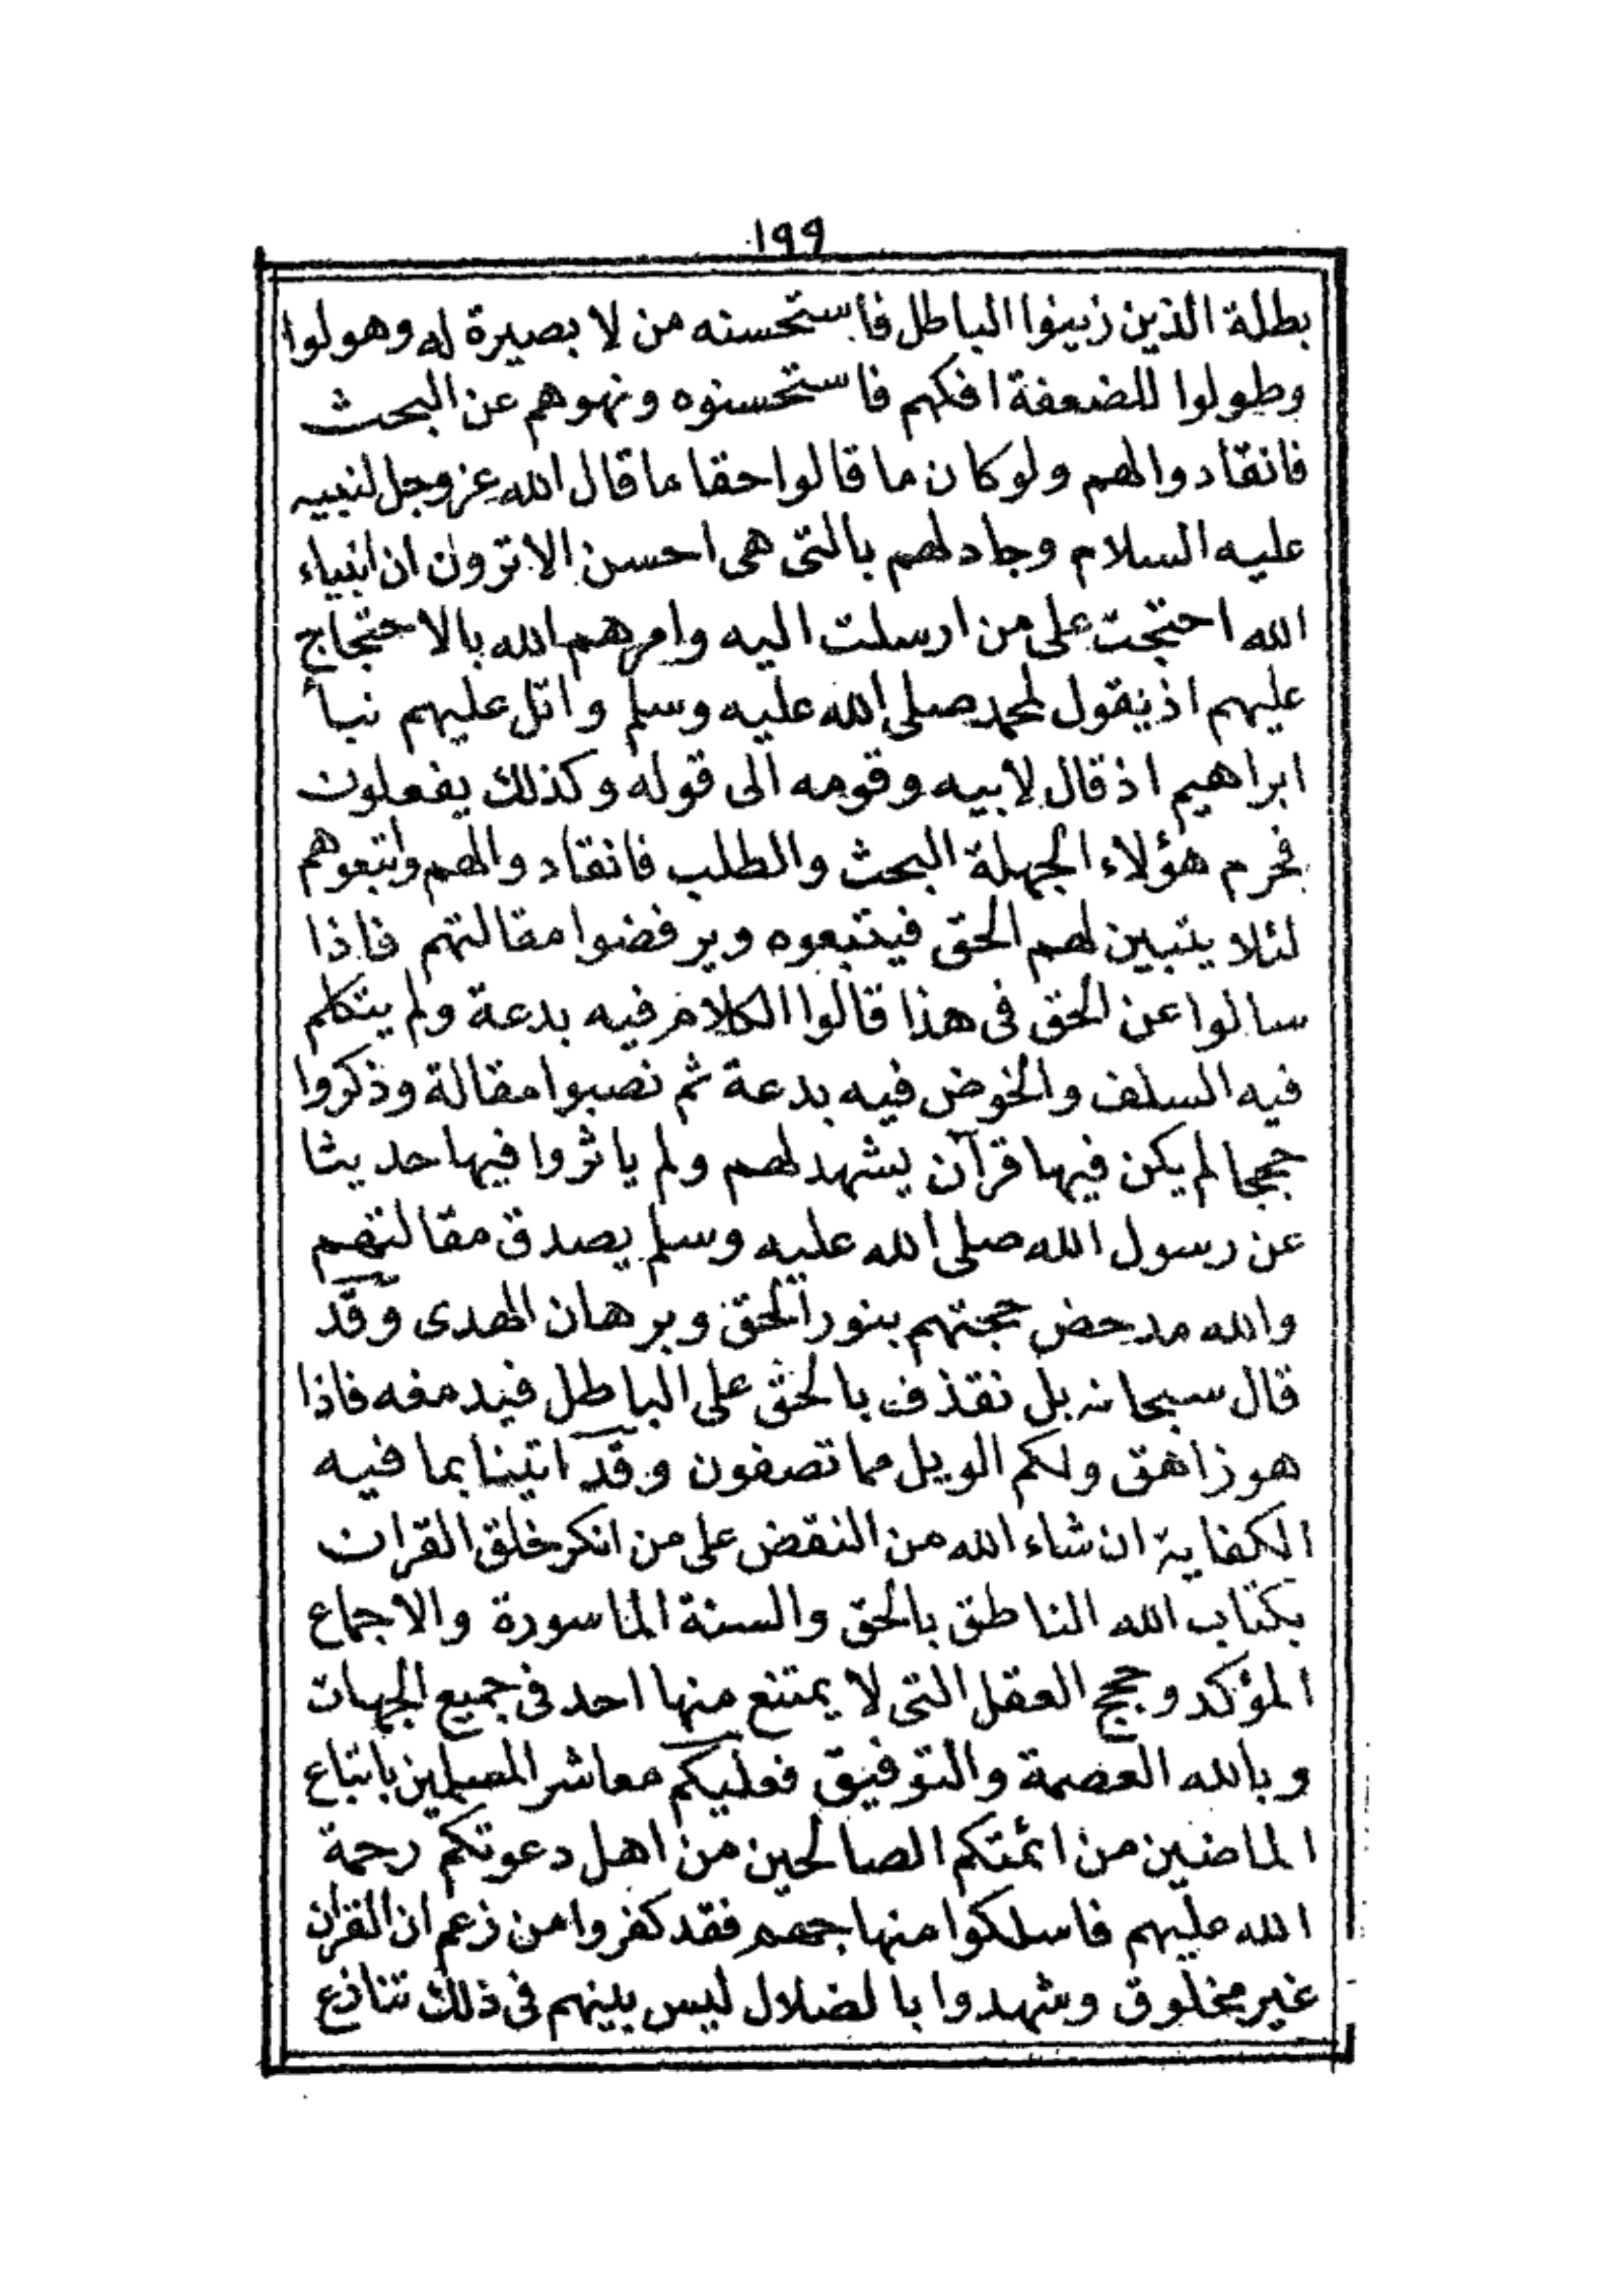 ١٩٩
بطلة الذين زينوا الباطل فاستحسنه من لا بصيرة له وهولوا
وطولوا للضعفة افكهم فاستحسنوه ونهوهم عن البحث
فانقادوا لهم ولو كان ما قالوا حقا ما قال الله عز وجل لنبيه
عليه السلام وجادلهم بالتى هى احسن الا ترون ان انبياء
الله احتجت على من ارسلت اليه وامرهم الله بالاحتجاج
عليهم اذ يقول لمحمد صلى الله عليه وسلم واتل عليهم نبأ
ابراهيم اذ قال لابيه وقومه الى قوله وكذلك يفعلون
فحرم هؤلاء الجهلة البحث والطلب فانقادوا لهم واتبعوهم
لئلا يتبين لهم الحق فيتبعوه ويرفضوا مقالتهم فاذا
سالوا عن الحق فى هذا قالوا الكلام فيه بدعة ولم يتكلم
فيه السلف والخوض فيه بدعة ثم نصبوا مقالة وذكروا
حججا لم يكن فيها قرآن يشهد لهم ولم ياثروا فيها حديثا
عن رسول الله صلى الله عليه وسلم يصدق مقالتهم
والله مدحض حجتهم بنور الحق وبرهان الهدى وقد
قال سبحانه بل نقذف بالحق على الباطل فيدمغه فاذا
هو زاهق ولكم الويل مما تصفون وقد اتينا بما فيه
الكفاية ان شاء الله من النقض على من انكر خلق القران
بكتاب الله الناطق بالحق والسنة الماسورة والاجماع
المؤكد وحجج العقل التى لا يمتنع منها احد فى جميع الجهات
وبالله العصمة والتوفيق فعليكم معاشر المسلمين باتباع
الماضين من ائمتكم الصالحين من اهل دعوتكم رحمة
الله عليهم فاسلكوا منهاجهم فقد كفروا من زعم ان القران
غير مخلوق وشهدوا بالضلال ليس بينهم فى ذلك تنازع